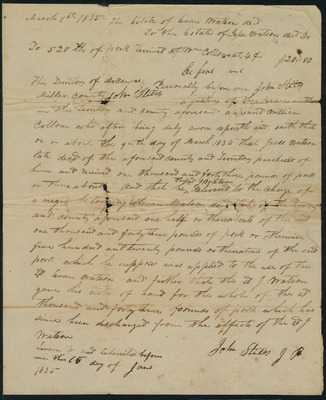 March 1st, 1835. The Estates of Evan Watson decd
To the Estate of Jesse Watson decd Dr
To 520 lbs of pork received at Wm Colloms at 4¢ $20.80
The Territory of Arkansas
Miller County
Personally before me John Stiles
a Justice of the peace
in the Territory and county aforesaid appeared William
Collom who after being duly sworn deposeth and saith that
on or about the 9th day of March 1834 that Jesse Watson
late decd of the aforesaid county and Territory purchased of
him and received one thousand and forty three pounds of pork
or thereabouts. And that he delivered to the charge of
a negro belonging to Evan Watson decd late of the Territory
and county aforesaid one half or thereabouts of the sd
one thousand and forty three pounds of pork or otherwise
five hundred and twenty pounds or thereabouts of the said
pork which he supposes was applied to the use of the
sd Evan Watson and further saith the sd J Watson
gave his note of hand for the whole of the sd
thousand and forty three pounds of pork which has
since been discharged from the effects of the sd J
Watson
Sworn to and subscribed before
me this 15 day of June
1835
John Stiles J P